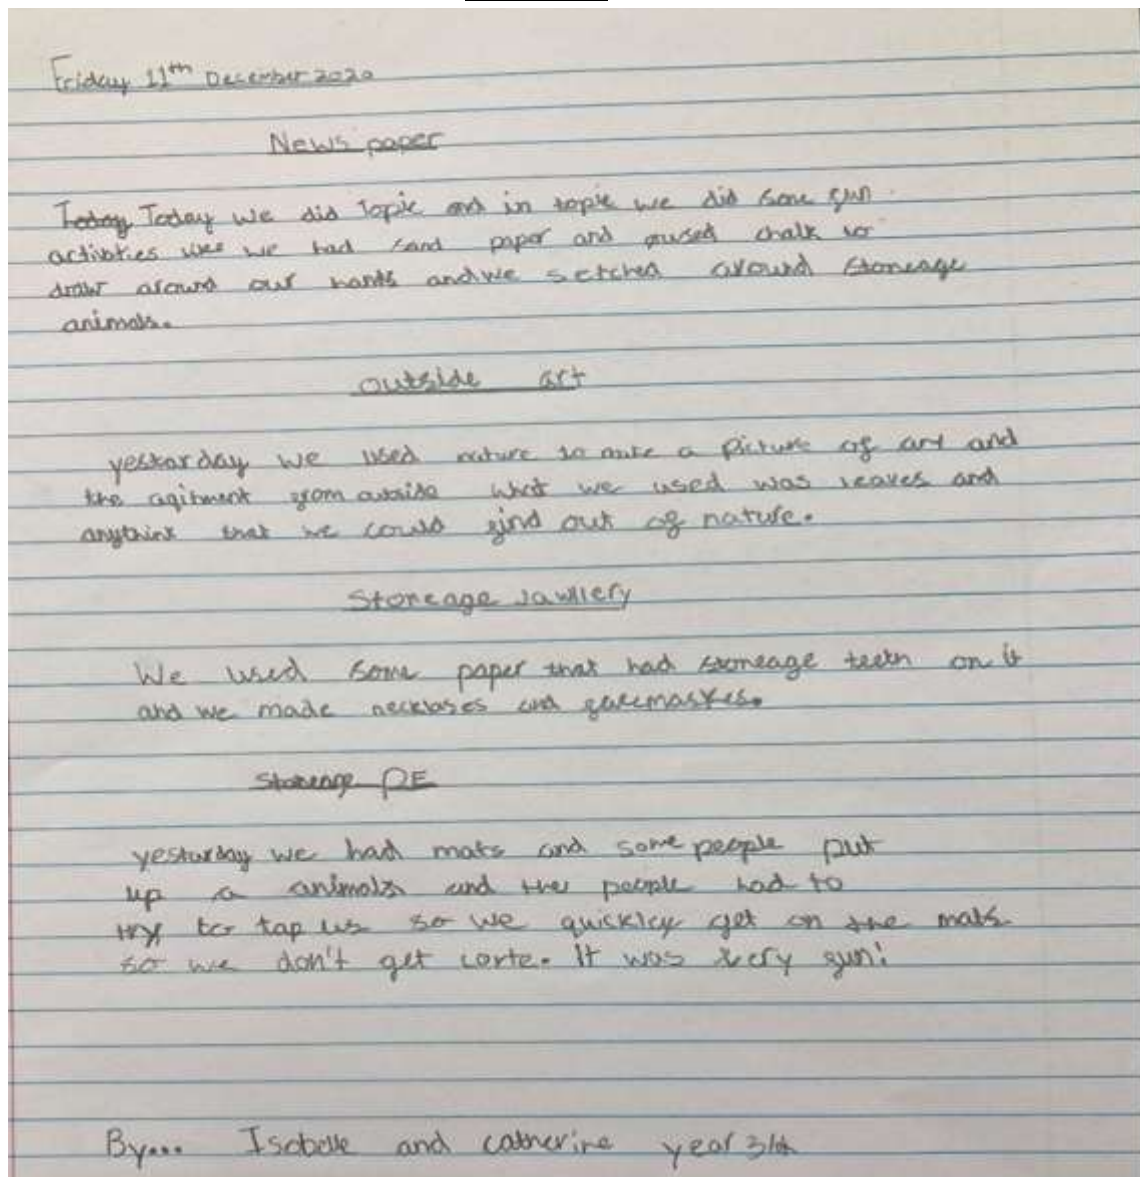 Friday 11th December 2020
News paper
Today Today we did Topic and in topic we did some fun
activities like we had sand paper and used chalk to
draw around our hands and we setched around stoneage
animals.
outside art
yestarday we used nature to make a picture of art and
the from outside what we used was leaves and
anythink that we could find out of nature.
Stoneage Jawllery
We used some paper that had stoneage teeth on it
and we made necklases and facemaskes.
Stoneage PE
yesturday we had mats and some people put
up a animals and the people had to
try to tap us so we quickley get on the mats
so we don't get corte. It was very fun!
By... Isobelle and catherine year 3/4